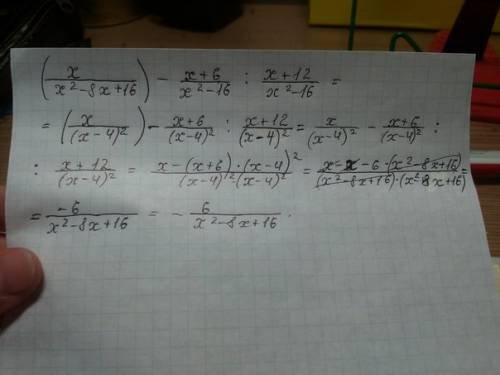 (x/(x²-8x+16)) - (x+6)/(x²-16) : (x+12)/(x²-16) =
= (x/(x-4)²) - (x+6)/(x-4)² : (x+12)/(x-4)² = x/(x-4)² - (x+6)/(x-4)² :
: (x+12)/(x-4)² = (x-(x+6)·(x-4)²)/((x-4)²·(x-4)²) = (x-x-6·(x²-8x+16))/((x²-8x+16)·(x²-8x+16)) =
= -6/(x²-8x+16) = - 6/(x²-8x+16) .